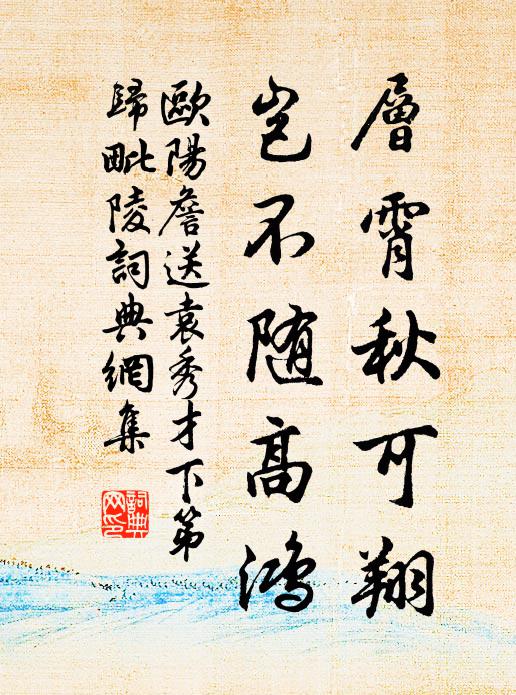 層霄秋可翔
岂不随高鸿
歐陽詹送袁秀才下第
歸毗陵詞典網集
詞典
网印